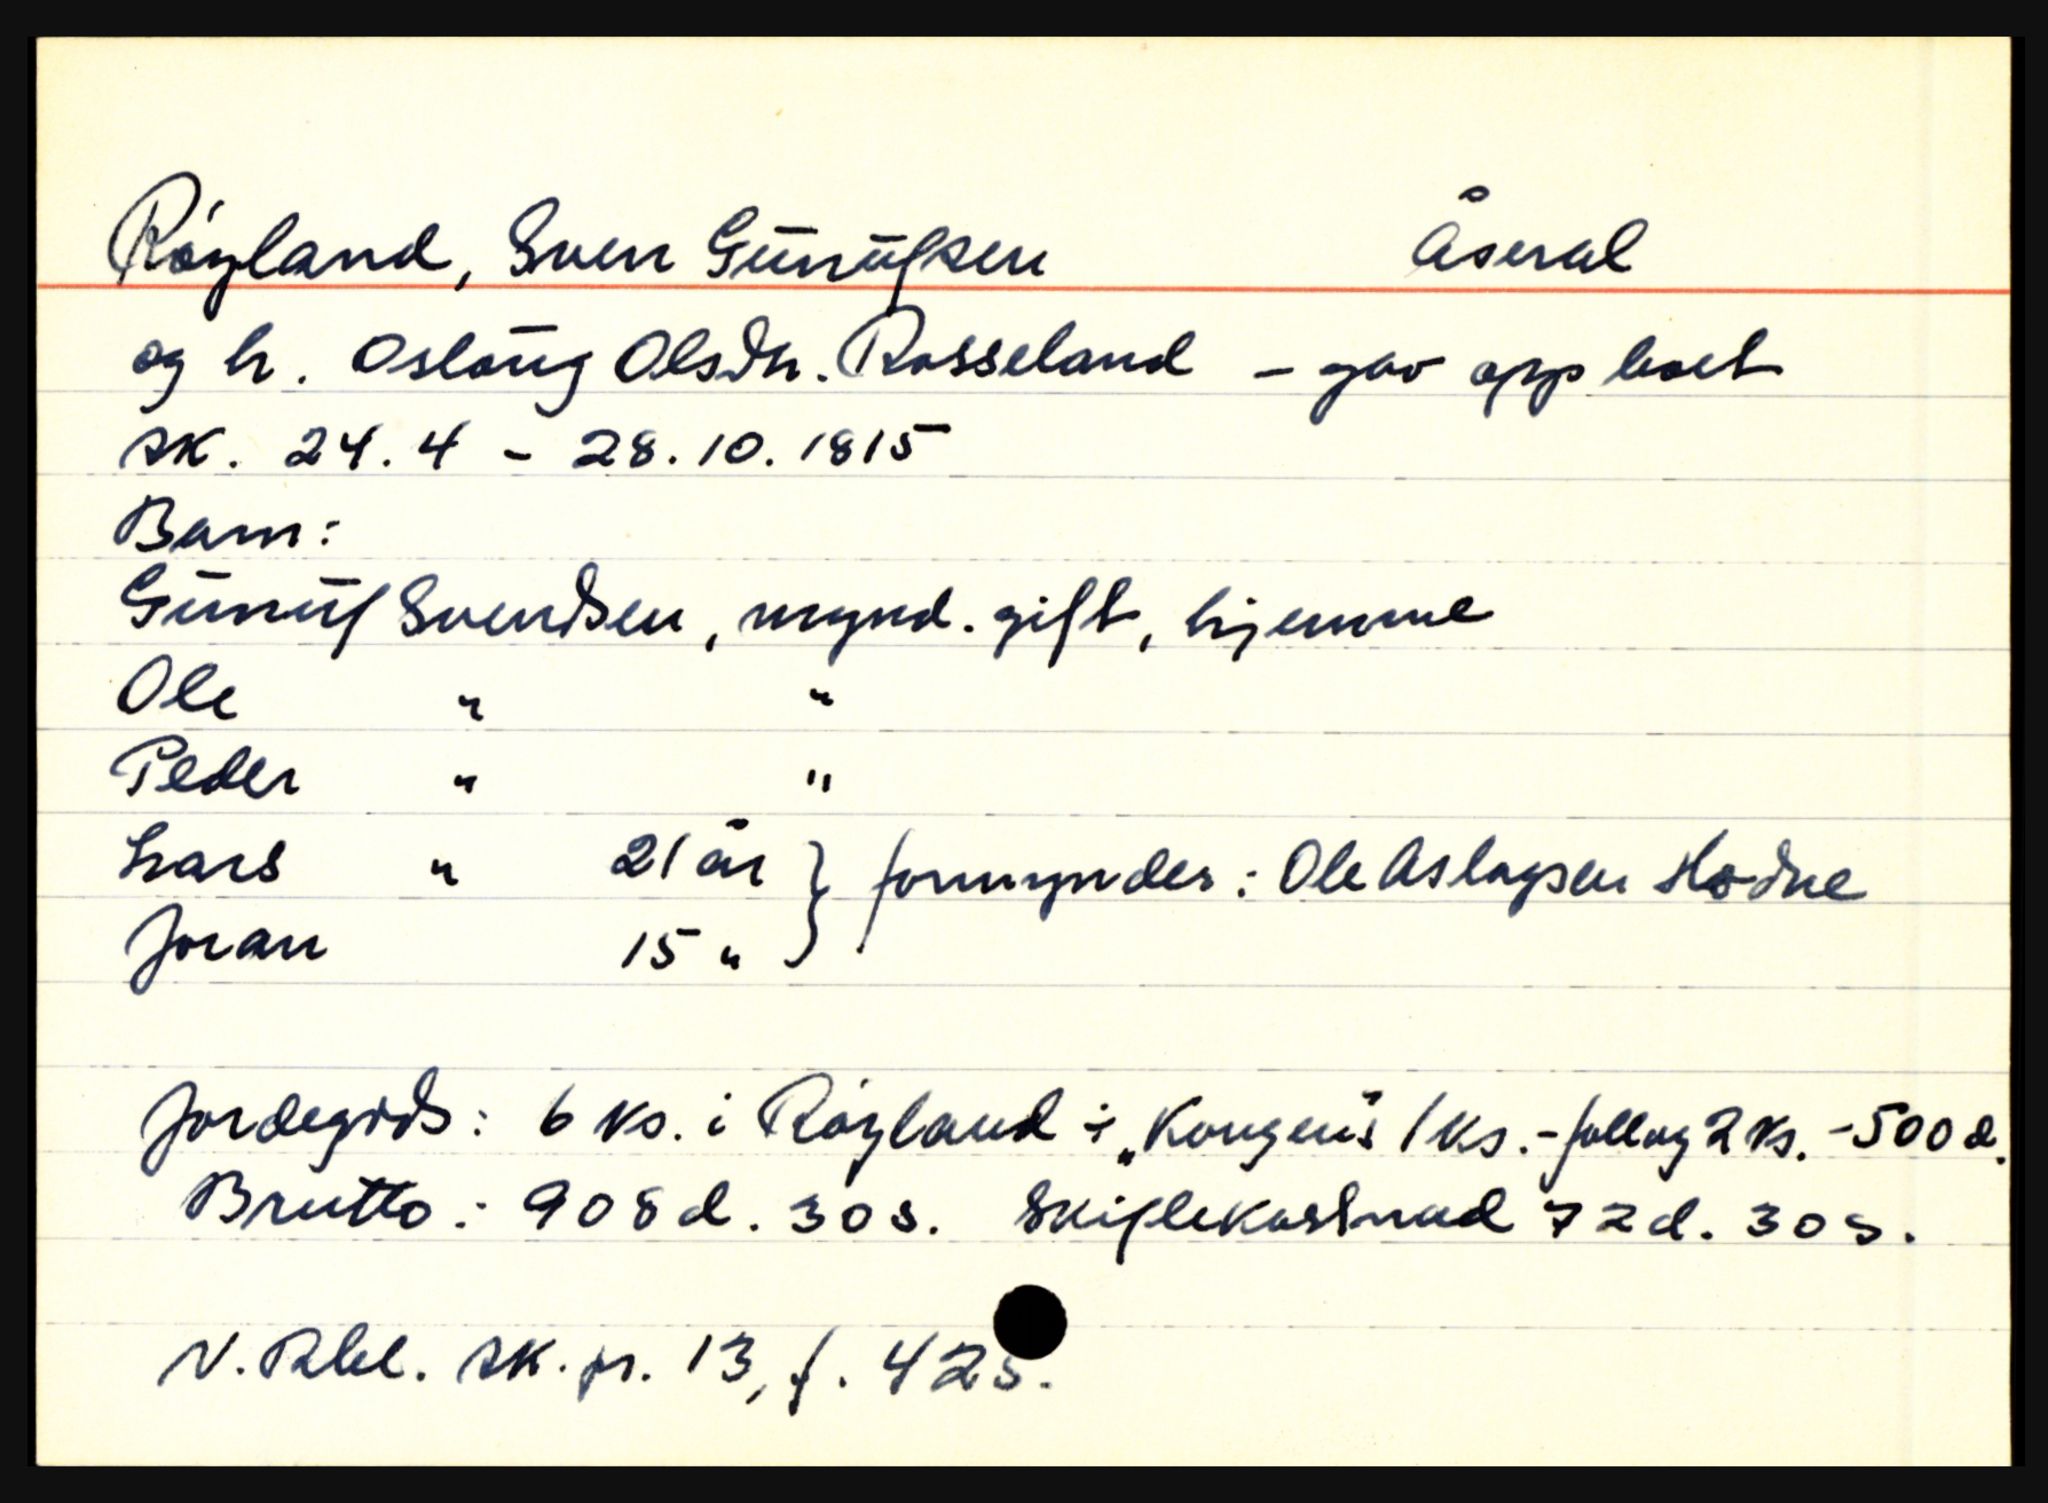 Røyland, Sven Gunufsen Åseral
og h. Osloug Olsdtr. Rosseland - gav opp boet
sk. 24.4 - 28.10.1815
Barn:
Gunuf Svendsen, mynd. gift, hjemme
Ole " "
Peder " "
Lars " 21 år } formynder: Ole Aslagsen Hodne
Joran 15 " }
Jordegods: 6 ks. i Røyland i "Kongens 1 ks. - follog 2 ks. - 500 d.
Brutto: 908 d. 30 s. Skiftekostnad 72 d. 30 s.
N. Rbl. sk. pr. 13, f. 42